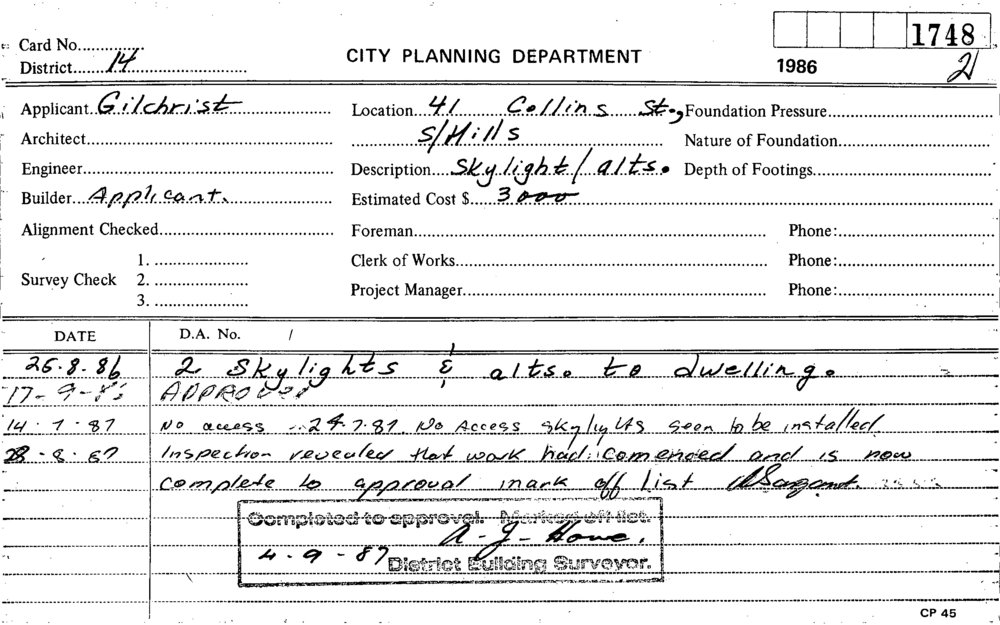 Card No............... 1748
District........14........................... CITY PLANNING DEPARTMENT 1986 2
Applicant..Gilchrist.................. Location...41 Collins St., Foundation Pressure.............................
Architect.................................... S/Hills Nature of Foundation...........................
Engineer..................................... Description....Skylight / alts. Depth of Footings................................
Builder...Applicant................... Estimated Cost $.....3000.....
Alignment Checked................................. Foreman.................................................. Phone:..............................
1. ....................
Clerk of Works.................................................. Phone:..............................
Survey Check 2. ....................
Project Manager.................................................. Phone:..............................
3. ....................
DATE D.A. No. /
26.8.86 2 Skylights & alts. to dwelling.
17-9-86 APPROVED
14.7.87 No access ... 24.7.87. No Access skylights seen to be installed
28.8.87 Inspection revealed that work had comenced and is now
complete to approval mark off list
Completed to approval. Marked off list.
A-J-Howe.
4-9-87 District Building Surveyor.
CP 45